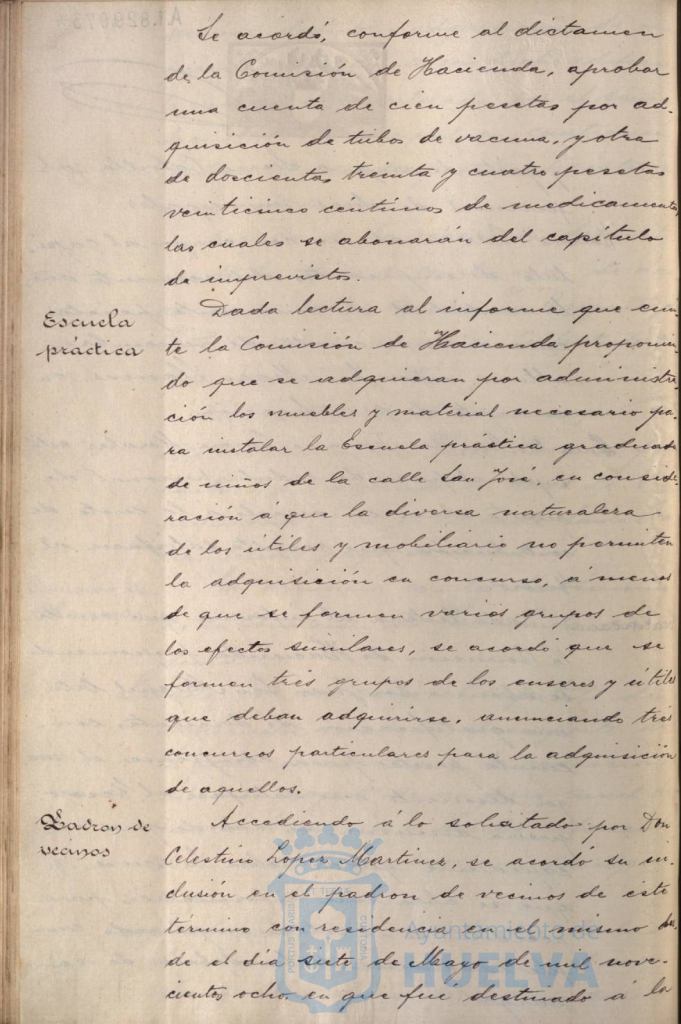 Se acordó, conforme al dictamen
de la Comisión de Hacienda, aprobar
una cuenta de cien pesetas por ad-
quisición de tubos de vacuna, y otra
de doscientas treinta y cuatro pesetas
veinticinco céntimos de medicamentos,
las cuales se abonarán del capítulo
de imprevistos.
Escuela
práctica
Dada lectura al informe que emi-
te la Comisión de Hacienda proponien-
do que se adquieran por administra-
ción los muebles y material necesario pa-
ra instalar la Escuela práctica graduada
de niños de la calle San José, en conside-
ración á que la diversa naturaleza
de los útiles y mobiliario no permiten
la adquisición en concurso, á menos
de que se formen varios grupos de
los efectos similares, se acordó que se
formen tres grupos de los enseres y útiles
que deban adquirirse, anunciando tres
concursos particulares para la adquisición
de aquellos.
Padron de
vecinos
Accediendo á lo solicitado por Don
Celestino Lopez Martinez, se acordó su in-
clusión en el padron de vecinos de este
término con residencia en el mismo des-
de el día siete de Mayo de mil nove-
cientos ocho, en que fué destinado á la
Ayuntamiento de
HUELVA